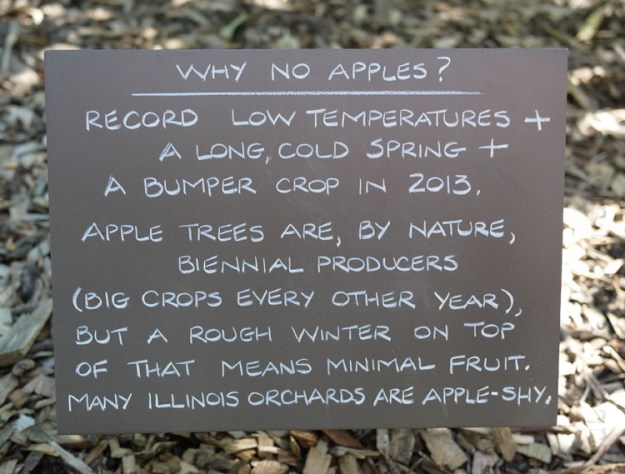 WHY NO APPLES?
RECORD LOW TEMPERATURES +
A LONG, COLD SPRING +
A BUMPER CROP IN 2013.
APPLE TREES ARE, BY NATURE,
BIENNIAL PRODUCERS
(BIG CROPS EVERY OTHER YEAR),
BUT A ROUGH WINTER ON TOP
OF THAT MEANS MINIMAL FRUIT.
MANY ILLINOIS ORCHARDS ARE APPLE-SHY.